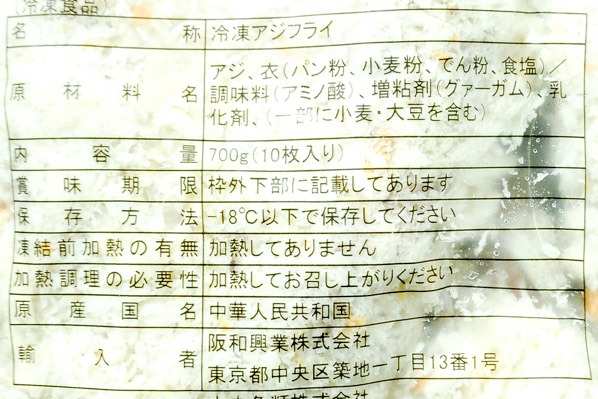 (冷凍食品)
名称 冷凍アジフライ
原材料名 アジ、衣(パン粉、小麦粉、でん粉、食塩)／
調味料(アミノ酸)、増粘剤(グァーガム)、乳
化剤、(一部に小麦・大豆を含む)
内容量 700g(10枚入り)
賞味期限 枠外下部に記載してあります
保存方法 -18℃以下で保存してください
凍結前加熱の有無 加熱してありません
加熱調理の必要性 加熱してお召し上がりください
原産国名 中華人民共和国
輸入者 阪和興業株式会社
東京都中央区築地一丁目13番1号